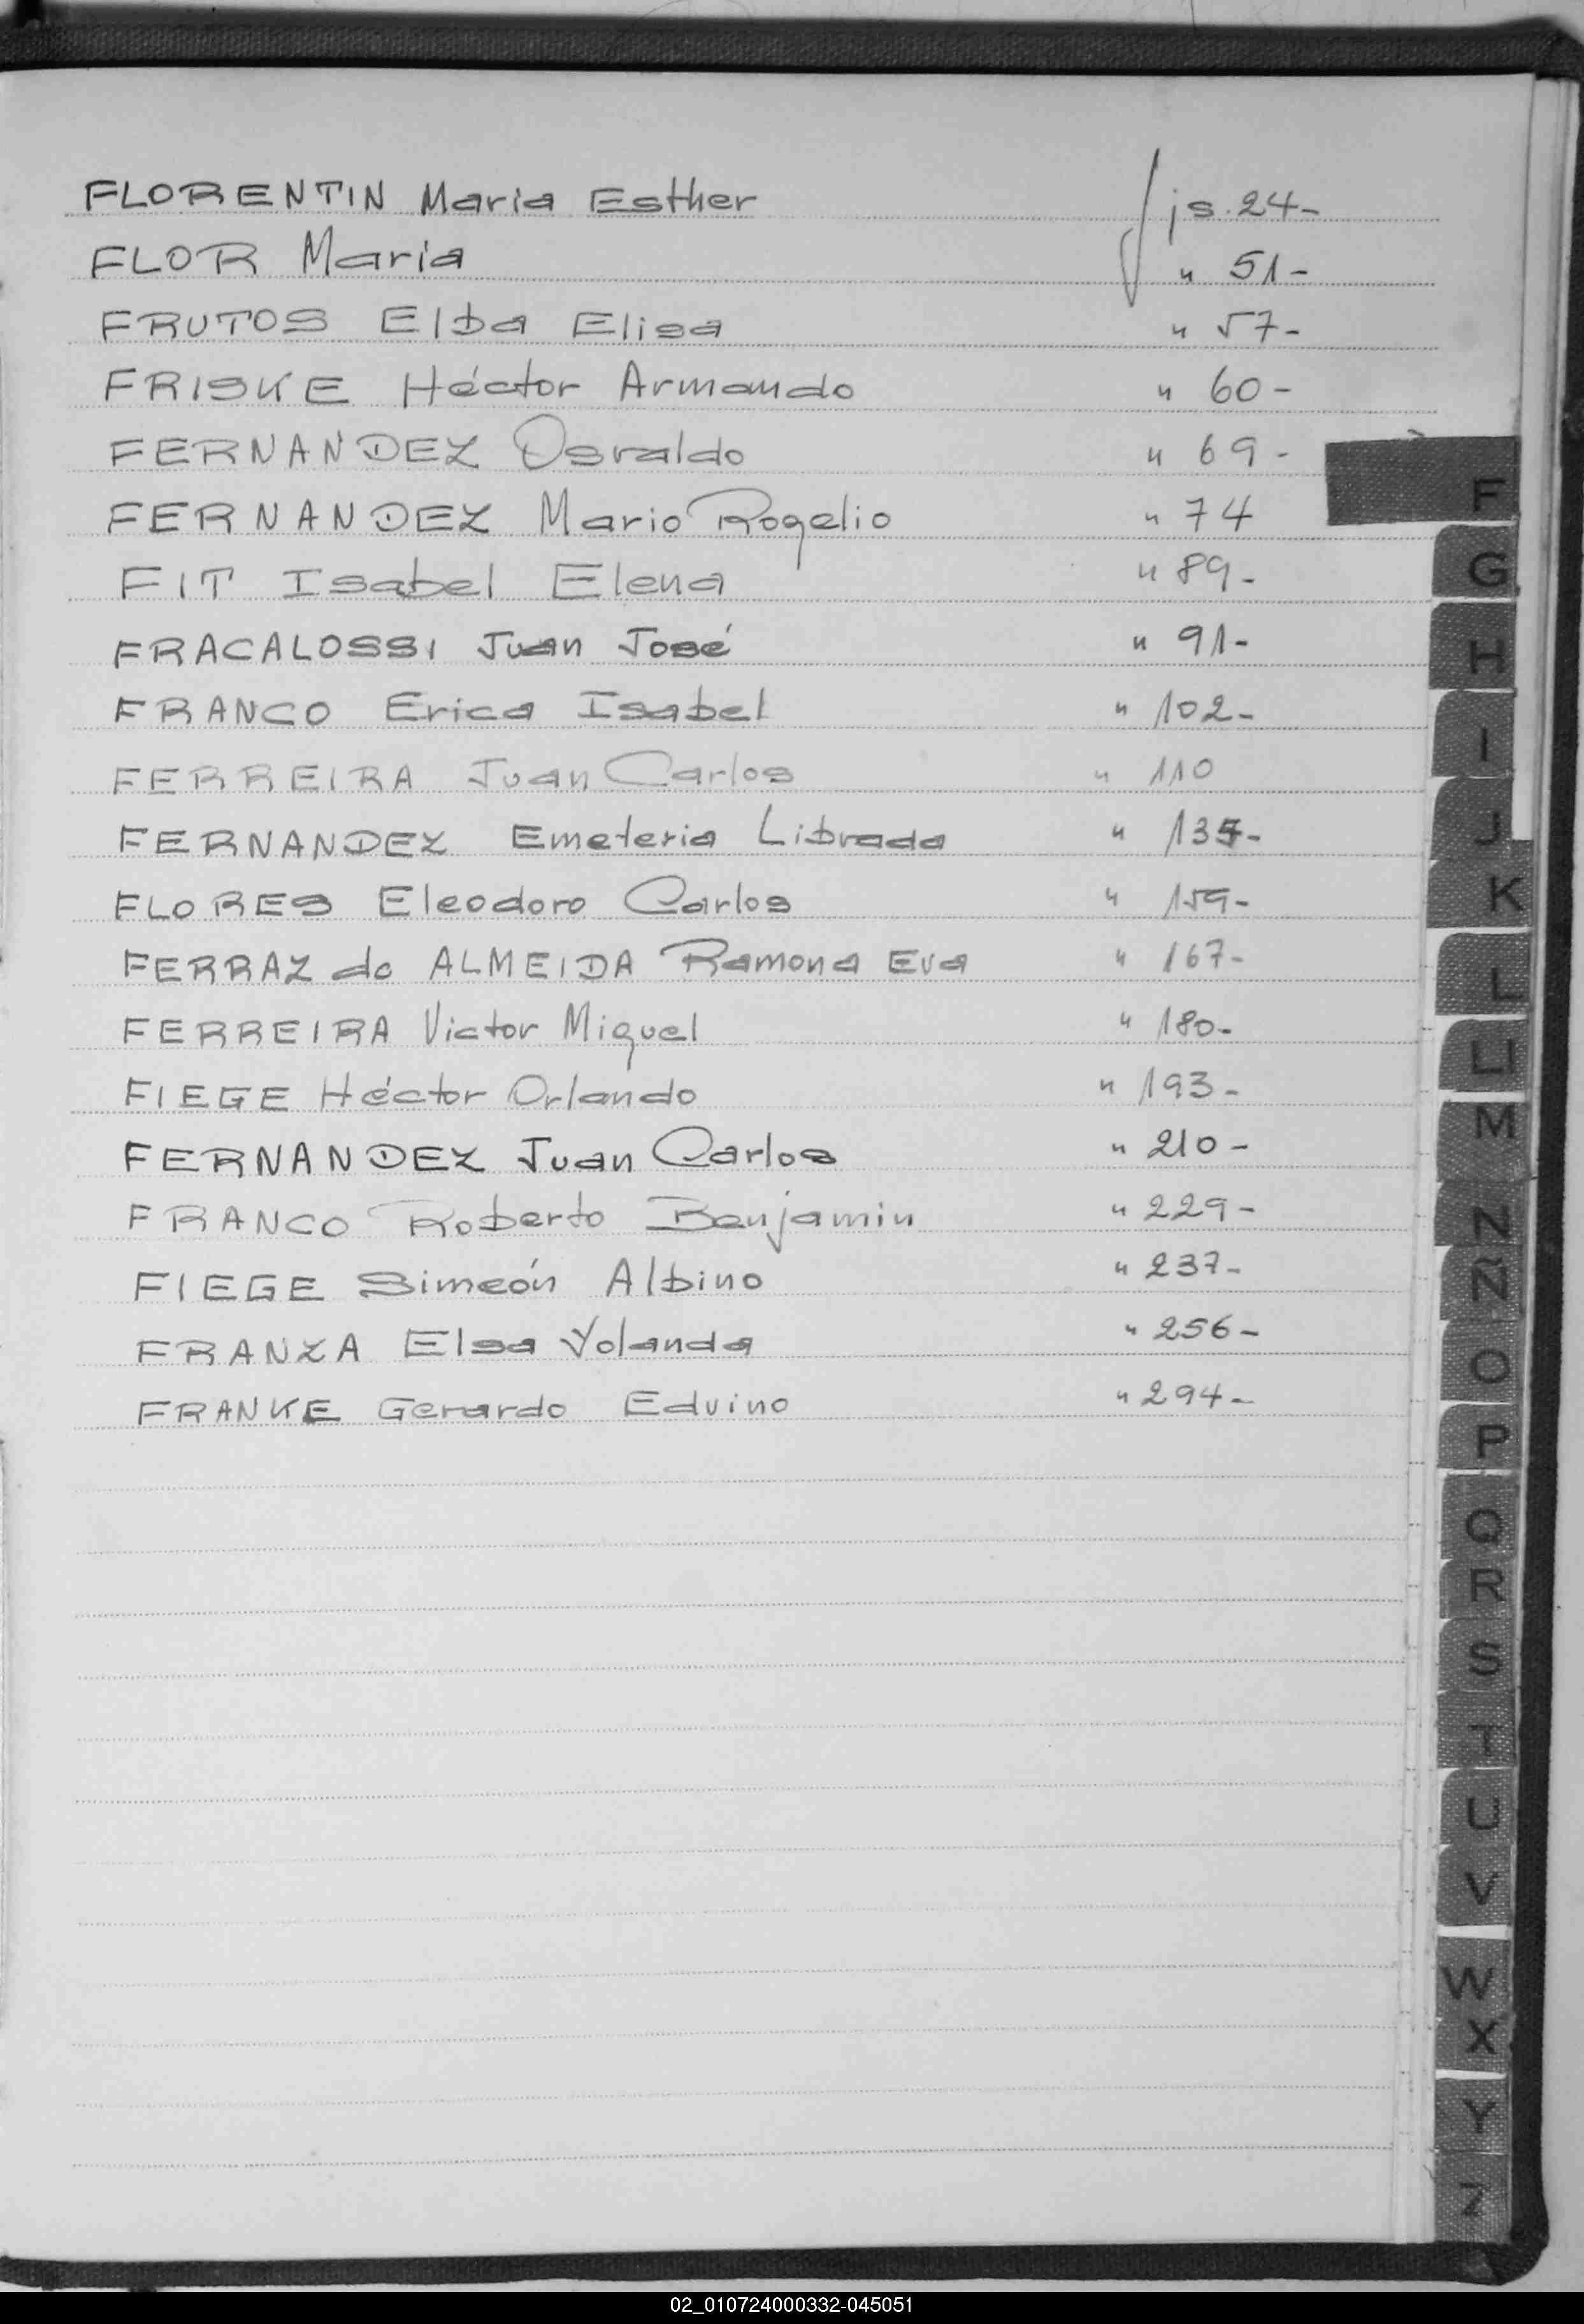 FLORENTIN Maria Esther fjs. 24-
FLOR Maria " 51-
FRUTOS Elba Elisa " 57-
FRISKE Héctor Armando " 60-
FERNANDEZ Osvaldo " 69-
FERNANDEZ Mario Rogelio " 74
FIT Isabel Elena " 89-
FRACALOSSI Juan José " 91-
FRANCO Erica Isabel " 102-
FERREIRA Juan Carlos " 110
FERNANDEZ Emeteria Librada "
FLORES Eleodoro Carlos " 159-
FERRAZ do ALMEIDA Ramona Eva " 167-
FERREIRA Victor Miguel " 180-
FIEGE Héctor Orlando " 193-
FERNANDEZ Juan Carlos " 210-
FRANCO Roberto Benjamin " 229-
FIEGE Simeón Albino " 237-
FRANZA Elsa Yolanda " 256-
FRANKE Gerardo Edvino " 294-
F
G
H
I
J
K
L
LL
M
N
Ñ
O
P
Q
R
S
T
U
V
W
X
Y
Z
02_010724000332-045051